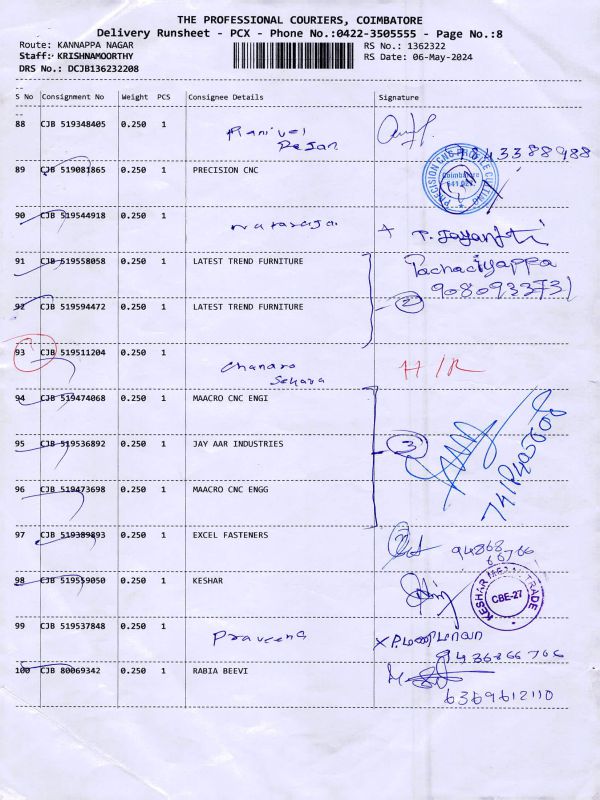 THE PROFESSIONAL COURIERS, COIMBATORE
Delivery Runsheet - PCX - Phone No.:0422-3505555 - Page No.:8
Route: KANNAPPA NAGAR RS No.: 1362322
Staff: KRISHNAMOORTHY RS Date: 06-May-2024
DRS No.: DCJB136232208
S No Consignment No Weight PCS Consignee Details Signature
88 CJB 519348405 0.250 1 Ranivel
Rajan
89 CJB 519081865 0.250 1 PRECISION CNC
PRECISION CNC PROFILE CUTTING
Coimbatore
90 CJB 519544918 0.250 1 Nataraja T. Jayanthi
91 CJB 519558058 0.250 1 LATEST TREND FURNITURE Pachaiyappa
9080933731
92 CJB 519594472 0.250 1 LATEST TREND FURNITURE 2
93 CJB 519511204 0.250 1 Chandra
Sekara
H/R
94 CJB 519474068 0.250 1 MAACRO CNC ENGI
95 CJB 519536892 0.250 1 JAY AAR INDUSTRIES 3
96 CJB 519473698 0.250 1 MAACRO CNC ENGG
97 CJB 519389893 0.250 1 EXCEL FASTENERS 94868
66766
98 CJB 519559050 0.250 1 KESHAR
KESHAR METAL TRADE
CBE-27
99 CJB 519537848 0.250 1 Praveena
9486866706
100 CJB 80069342 0.250 1 RABIA BEEVI
6369612110